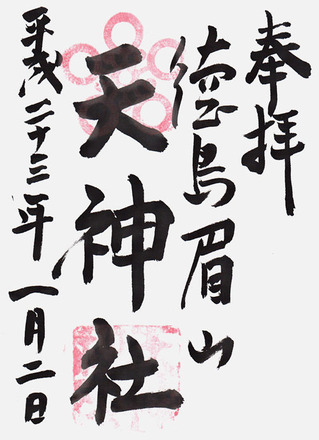 奉拝
徳島眉山
天神社
平成二十三年一月二日